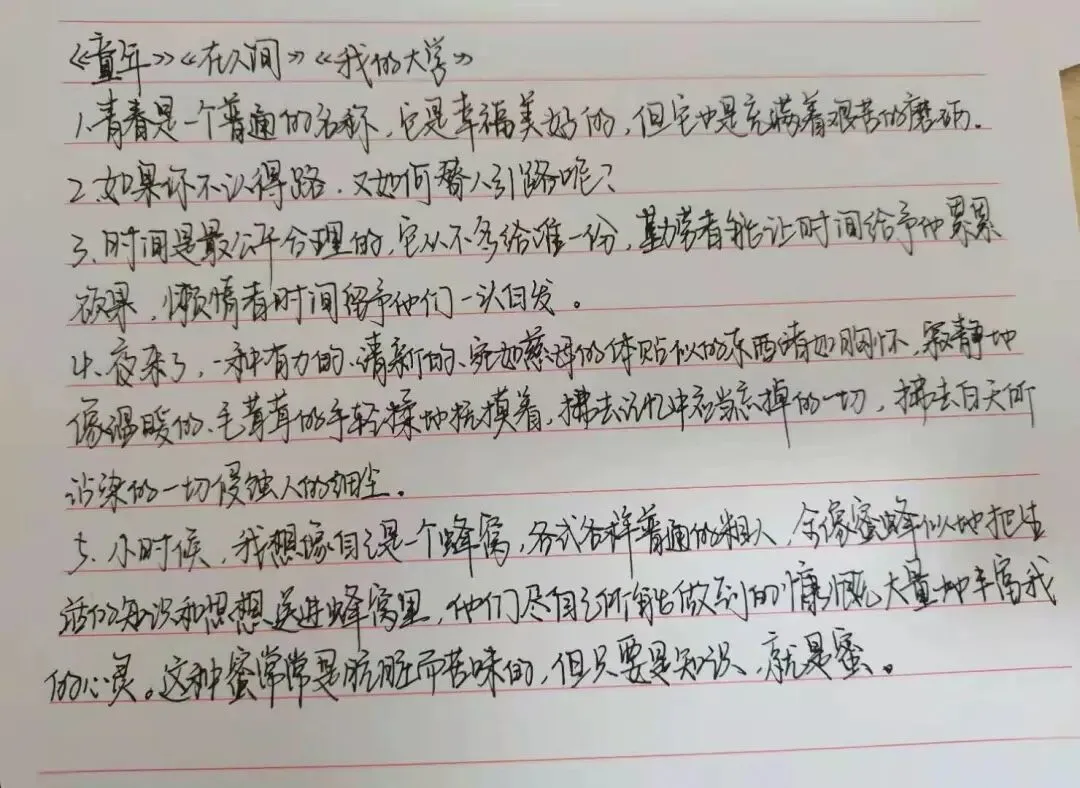 《童年》《在人间》《我的大学》
1、青春是一个普通的名称，它是幸福美好的，但它也是充满着艰苦的磨砺。
2、如果你不认得路，又如何替人引路呢？
3、时间是最公平合理的，它从不多给谁一份，勤劳者能让时间给予他累累
硕果，懒惰者时间给予他们一头白发。
4、夜来了，一种有力的、清新的、宛如慈母的体贴似的东西注入胸怀，寂静地
像温暖的、毛茸茸的手轻揉地抚摸着，拂去记忆中应当忘掉的一切，拂去白天所
沾染的一切侵蚀人的细尘。
5、小时候，我想像自己是一个蜂窝，各式各样普通的粗人，全像蜜蜂似地把生
活的知识和思想送进蜂窝里，他们尽自己所能做到的慷慨大量地丰富我
的心灵。这种蜜常常是肮脏而苦味的，但只要是知识，就是蜜。